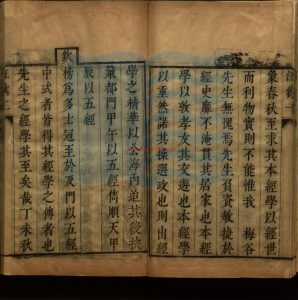 象春秋至求其本經學以經世
而利物實則不能惟我 梅谷
先生無愧焉先生負資敏捷於
經史靡不淹貫其居家也本經
學以敦孝友其交遊也本經學
以重然諾其操選政也則出經
學之精華以公海內迨其後挾
策都門甲午以五經雋順天甲
辰以五經
欽榜為多士冠至於及門以五經
中式者皆得其經學之傳者也
先生之經學其至矣哉丁未秋